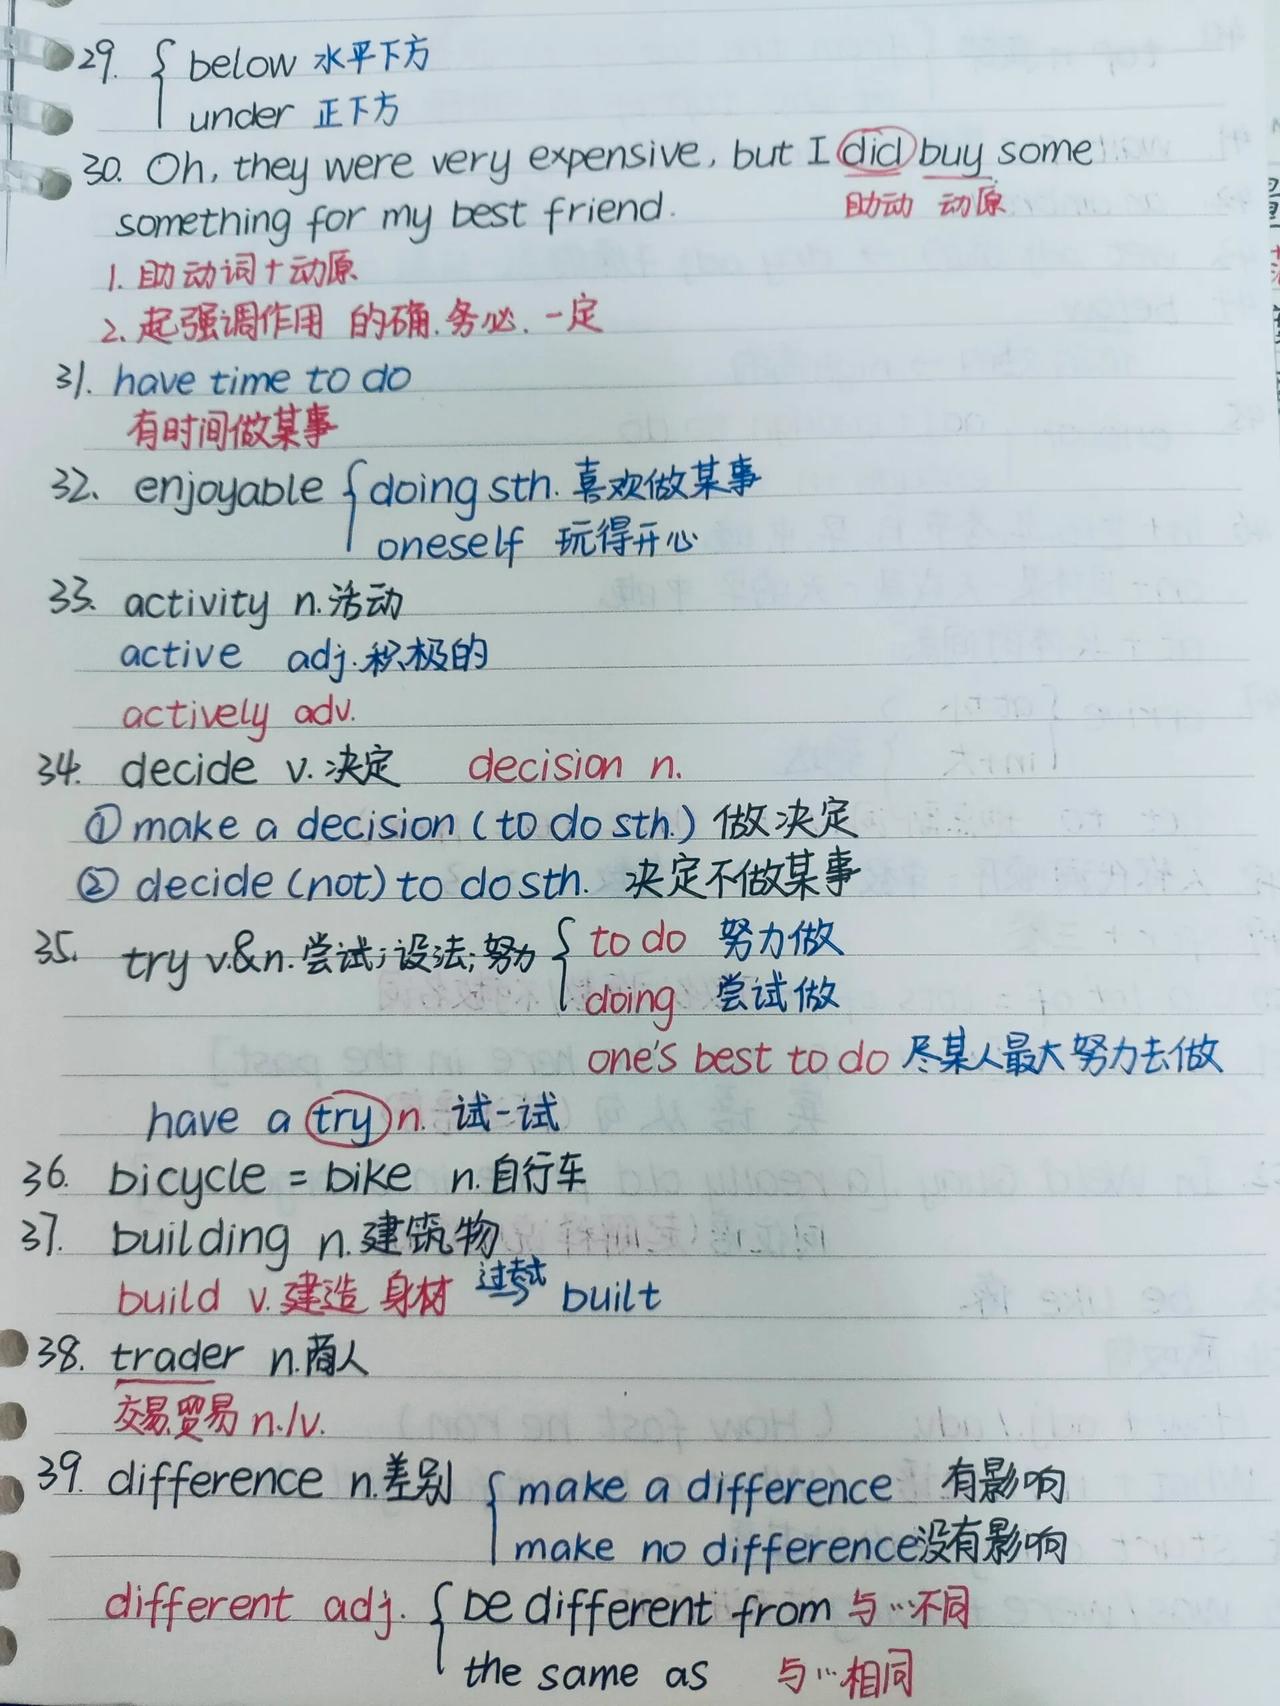 29. { below 水平下方
under 正下方
30. Oh, they were very expensive, but I did buy some
助动 动原
something for my best friend.
1. 助动词+动原
2. 起强调作用 的确.务必.一定
31. have time to do
有时间做某事
32. enjoyable { doing sth. 喜欢做某事
oneself 玩得开心
33. activity n.活动
active adj.积极的
actively adv.
34. decide v.决定 decision n.
① make a decision (to do sth.) 做决定
② decide (not) to do sth. 决定不做某事
35. try v.&n.尝试;设法;努力 { to do 努力做
doing 尝试做
one's best to do 尽某人最大努力去做
have a try n. 试一试
36. bicycle = bike n.自行车
37. building n.建筑物
build v.建造 身材 过去式 built
38. trader n.商人
交易.贸易 n./v.
39. difference n.差别 { make a difference 有影响
make no difference没有影响
different adj. { be different from 与…不同
the same as 与…相同